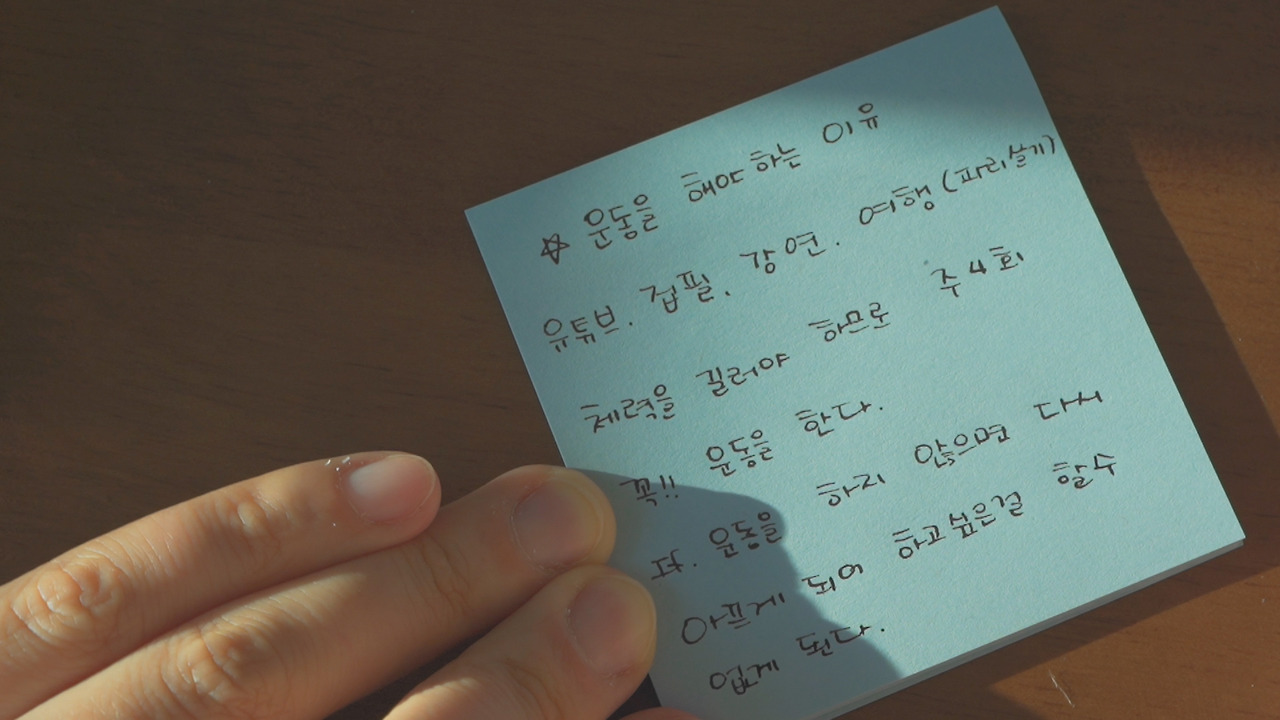 ☆ 운동을 해야 하는 이유
유튜브. 집필. 강연. 여행 (파리살기)
체력을 길러야 하므로 주4회
꼭!! 운동을 한다.
다. 운동을 하지 않으면 다시
아프게 되어 하고싶은걸 할수
없게 된다.